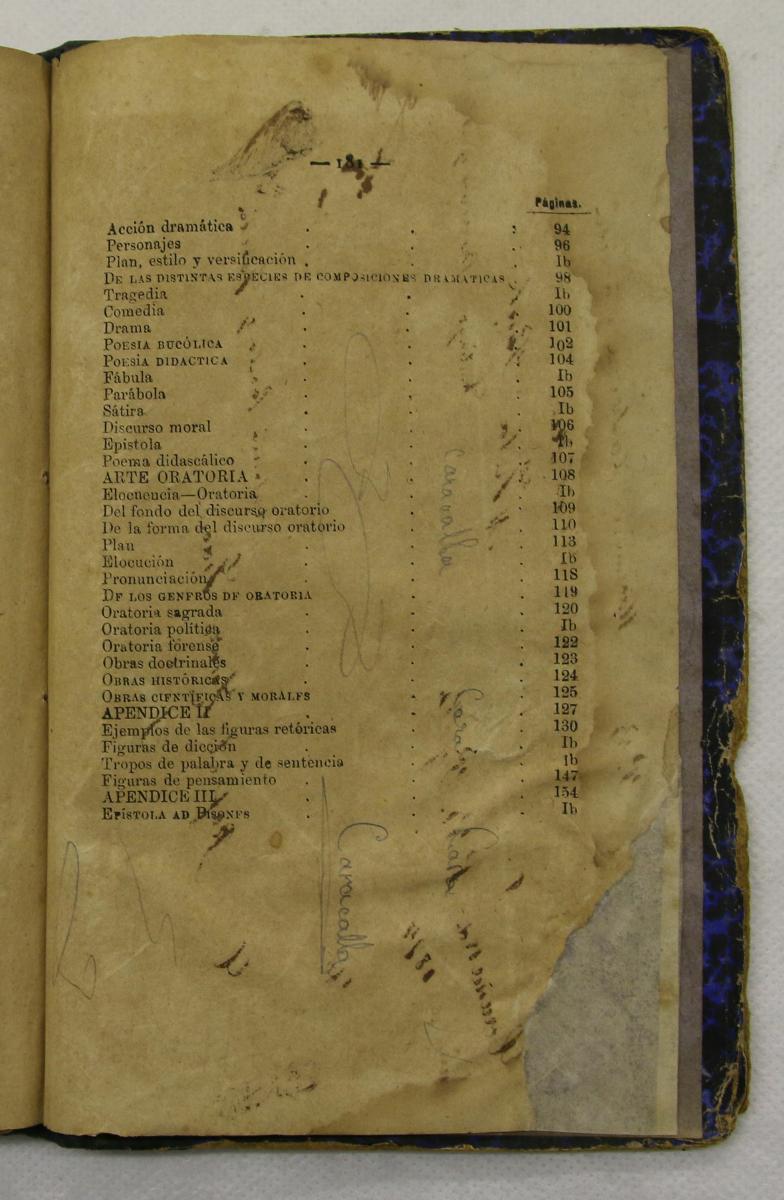 Páginas.
Acción dramática 94
Personajes 96
Plan, estilo y versificación . Ib
DE LAS DISTINTAS ESPECIES DE COMPOSICIONES DRAMATICAS 98
Tragedia Ib
Comedia 100
Drama 101
POESIA BUCÓLICA 102
POESIA DIDACTICA 104
Fábula Ib
Parábola 105
Sátira Ib
Discurso moral 106
Epistola Ib
Poema didascálico 107
ARTE ORATORIA 108
Elocuencia—Oratoria Ib
Del fondo del discurso oratorio 109
De la forma del discurso oratorio 110
Plan 113
Elocución Ib
Pronunciación 118
DE LOS GENEROS DE ORATORIA 119
Oratoria sagrada 120
Oratoria politica Ib
Oratoria forense 122
Obras doctrinales 123
OBRAS HISTÓRICAS 124
OBRAS CIENTIFICAS Y MORALES 125
APENDICE II 127
Ejemplos de las figuras retóricas 130
Figuras de dicción Ib
Tropos de palabra y de sentencia Ib
Figuras de pensamiento 147
APENDICE III 154
EPÍSTOLA AD PISONES Ib
Caracalla
Caracalla